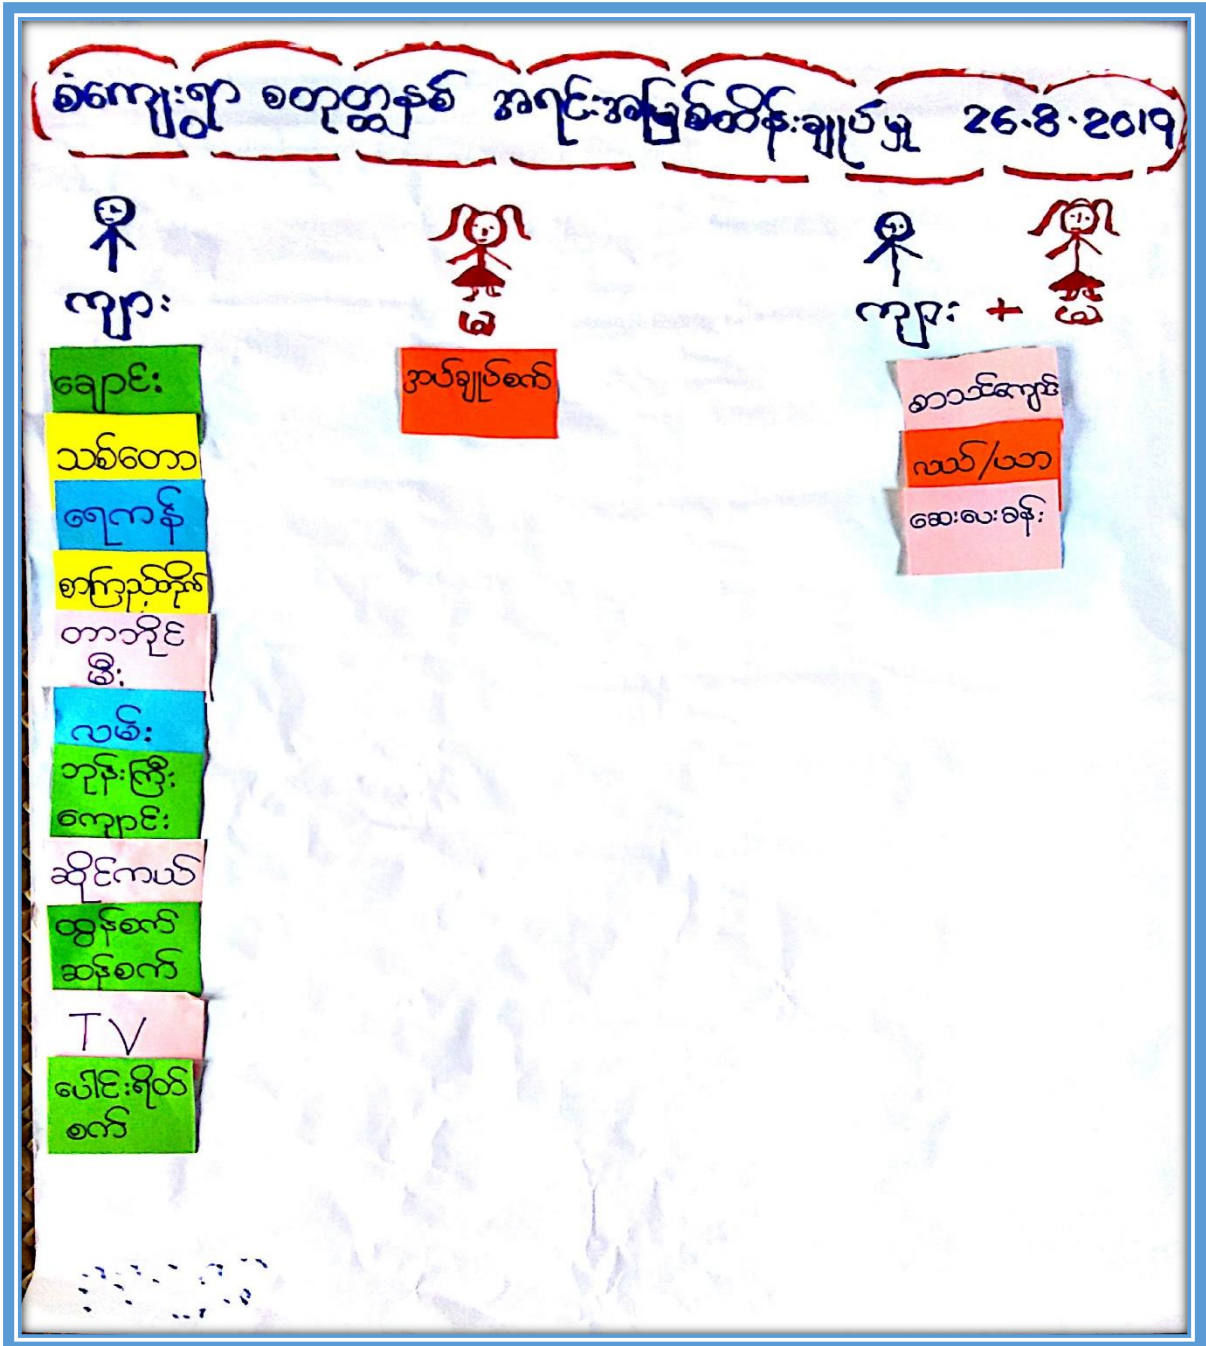 စံကျေးရွာ စတုတ္ထနှစ် အရင်းအမြစ်ထိန်းချုပ်မှု 26.8.2019
ကျား
မ
ကျား + မ
ချောင်း
သစ်တော
ရေကန်
စာကြည့်တိုက်
တာဘိုင်
မီး
လမ်း
ဘုန်းကြီး
ကျောင်း
ဆိုင်ကယ်
ထွန်စက်
ဆန်စက်
TV
ပေါင်းရိတ်
စက်
အပ်ချုပ်စက်
စာသင်ကျောင်း
လယ်/ယာ
ဆေးပေးခန်း